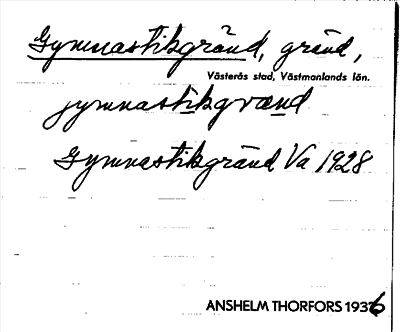 Gymnastikgränd, gränd,
Västerås stad, Västmanlands län.
jymnastikgvænd
Gymnastikgränd Va 1928
ANSHELM THORFORS 1936